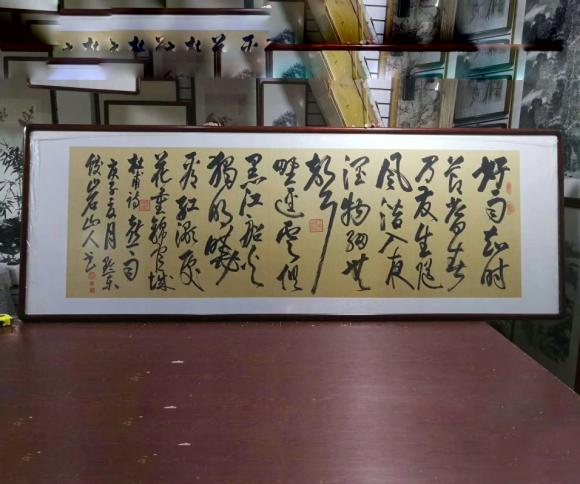 好雨知时
节当春
乃发生随
风潜入夜
润物细无
声
野径云俱
黑江船火
独明晓
看红湿处
花重锦官城
杜甫诗
庚子夏月
岩山人书